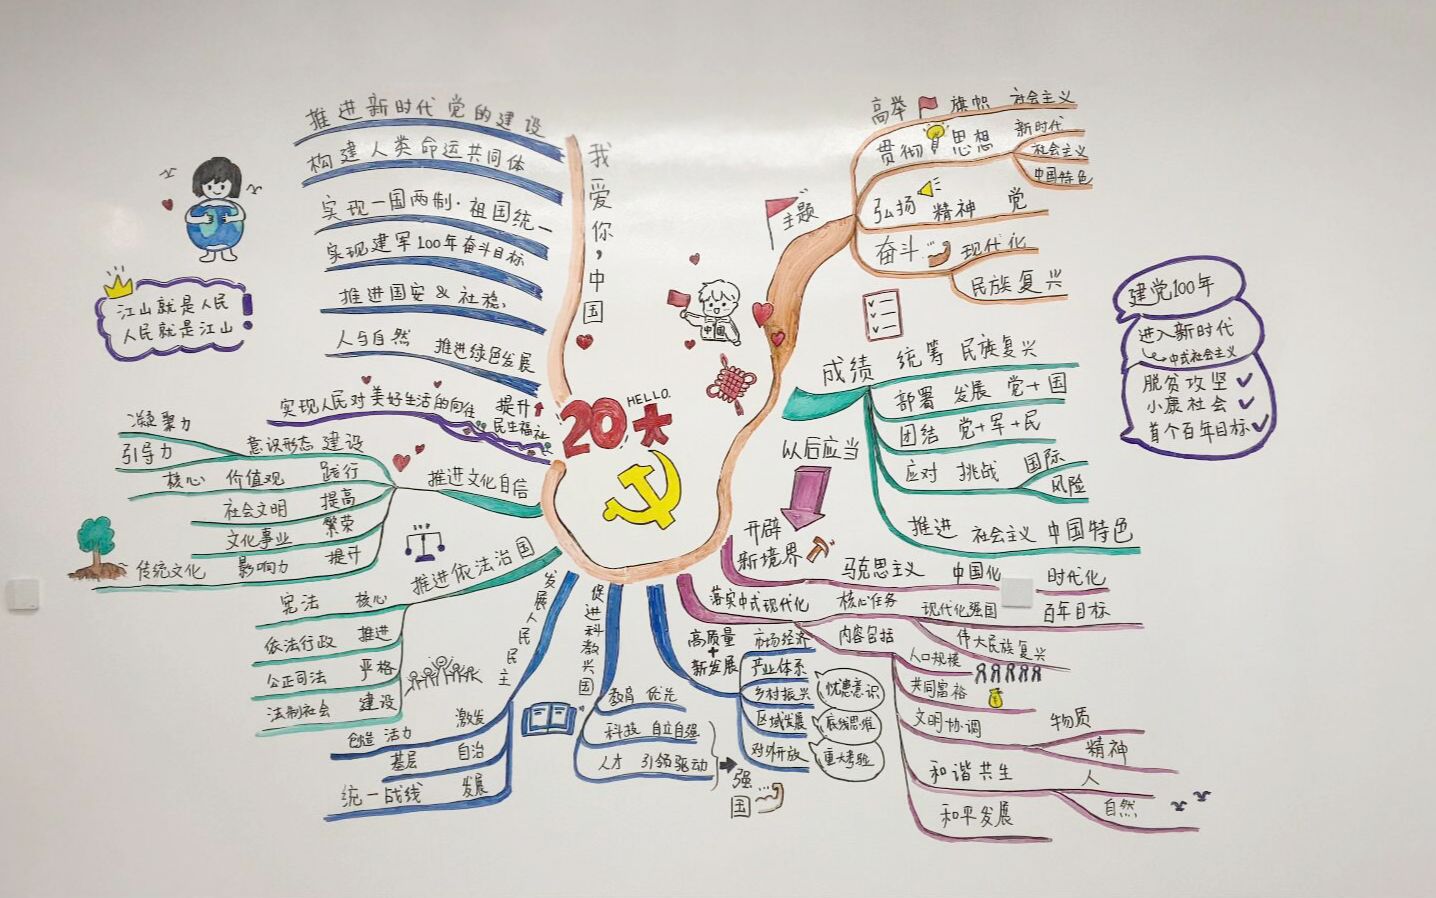 HELLO.
20大
主题
高举 旗帜 社会主义
贯彻 思想 新时代
社会主义
中国特色
弘扬 精神 党
奋斗 现代化
民族复兴
中国
成绩 统筹 民族复兴
部署 发展 党+国
团结 党+军+民
应对 挑战 国际
风险
推进 社会主义 中国特色
建党100年
进入新时代
中式社会主义
脱贫攻坚
小康社会
首个百年目标
以后应当
开辟
新境界
马克思主义 中国化 时代化
落实中式现代化 核心任务 现代化强国 百年目标
伟大民族复兴
内容包括
人口规模
共同富裕
文明协调 物质
精神
和谐共生 人
自然
和平发展
高质量
+
新发展
市场经济
产业体系
乡村振兴
区域发展
对外开放
忧患意识
底线思维
重大考验
促进科教兴国
教育 优先
科技 自立自强
人才 引领驱动
强国
发展人民民主
激发 创造 活力
基层 自治
统一战线 发展
推进依法治国
宪法 核心
依法行政 推进
公正司法 严格
法制社会 建设
推进文化自信
凝聚力
引导力
意识形态 建设
核心 价值观 践行
社会文明 提高
文化事业 繁荣
传统文化 影响力 提升
实现人民对美好生活的向往
提升
民生福祉
人与自然 推进绿色发展
推进国安 & 社稳.
实现建军100年奋斗目标
实现一国两制·祖国统一
构建人类命运共同体
推进新时代 党的建设
我爱你，中国
江山就是人民
人民就是江山